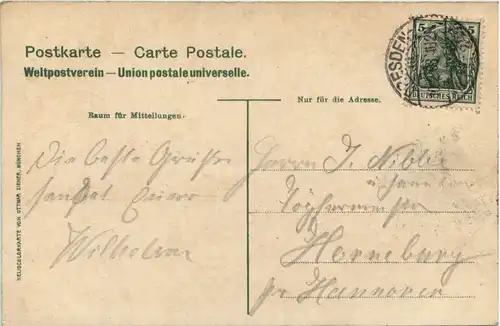 Postkarte — Carte Postale.
Weltpostverein — Union postale universelle.
Nur für die Adresse.
Raum für Mitteilungen.
DRESDEN
5 5
DEUTSCHES REICH
HELIOCOLORKARTE VON OTTMAR ZIEHER, MÜNCHEN
Die beste Grüße
sendet Euer
Wilhelm
Herrn J.
Töpfermeister
Horneburg
pr Hannover